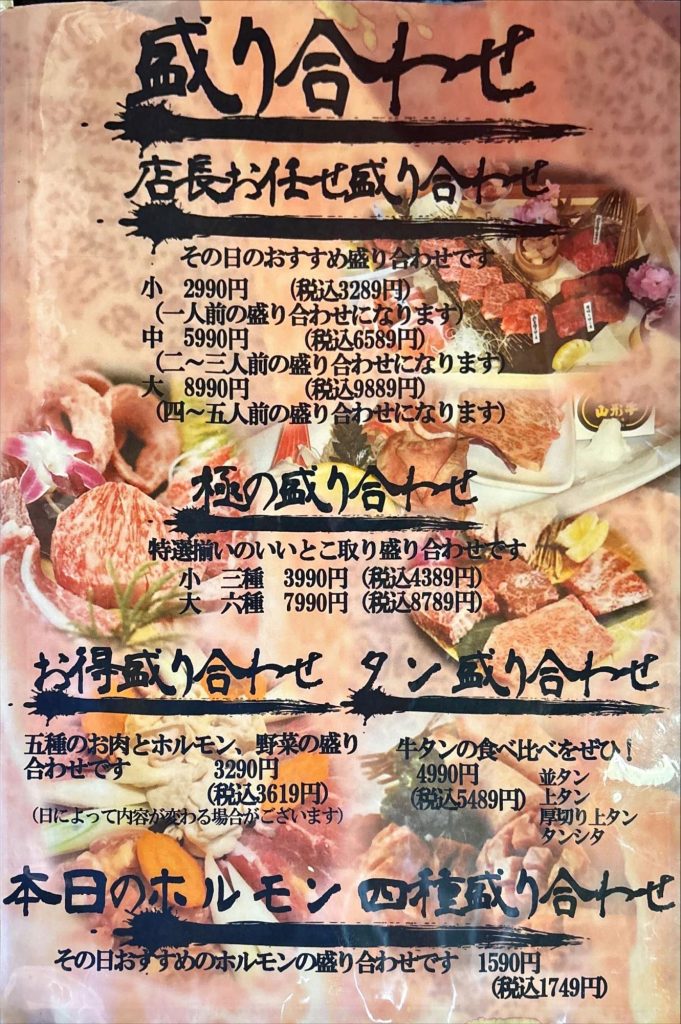 盛り合わせ
店長お任せ盛り合わせ
その日のおすすめ盛り合わせです
小 2990円 (税込3289円)
(一人前の盛り合わせになります)
中 5990円 (税込6589円)
(二～三人前の盛り合わせになります)
大 8990円 (税込9889円)
(四～五人前の盛り合わせになります)
極の盛り合わせ
特選揃いのいいとこ取り盛り合わせです
小 三種 3990円 (税込4389円)
大 六種 7990円 (税込8789円)
お得盛り合わせ
五種のお肉とホルモン、野菜の盛り
合わせです 3290円
(税込3619円)
(日によって内容が変わる場合がございます)
タン盛り合わせ
牛タンの食べ比べをぜひ！
4990円
(税込5489円)
並タン
上タン
厚切り上タン
タンシタ
本日のホルモン 四種盛り合わせ
その日おすすめのホルモンの盛り合わせです 1590円
(税込1749円)